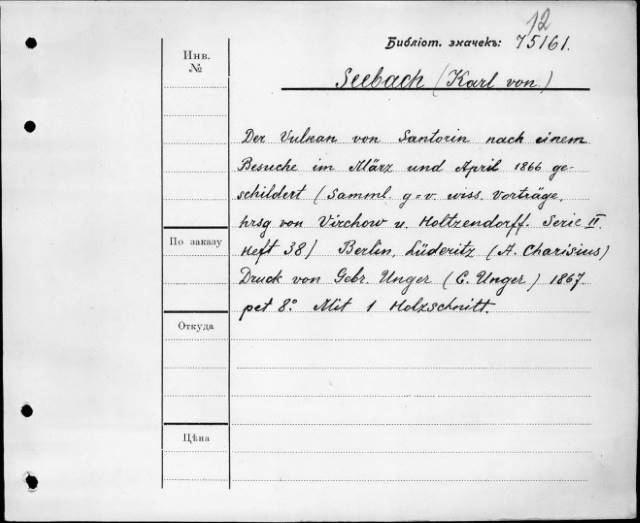 12
Библіот. значекъ: 75161.
Инв.
№
Seebach (Karl von)
Der Vulkan von Santorin nach einem
Besuche im März und April 1866 ge-
schildert (Samml. g=v. wiss. Vorträge,
hrsg von Virchow u. Holtzendorff. Serie II.
Heft 38) Berlin, Lüderitz (A. Charisius)
Druck von Gebr. Unger (C. Unger) 1867.
pet 8.° Mit 1 Holzschnitt.
По заказу
Откуда
Цѣна